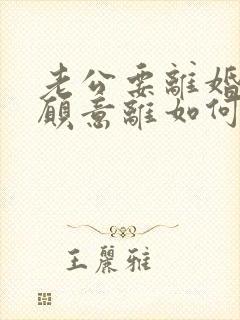 老公要離婚
願意離如何
王麗雅